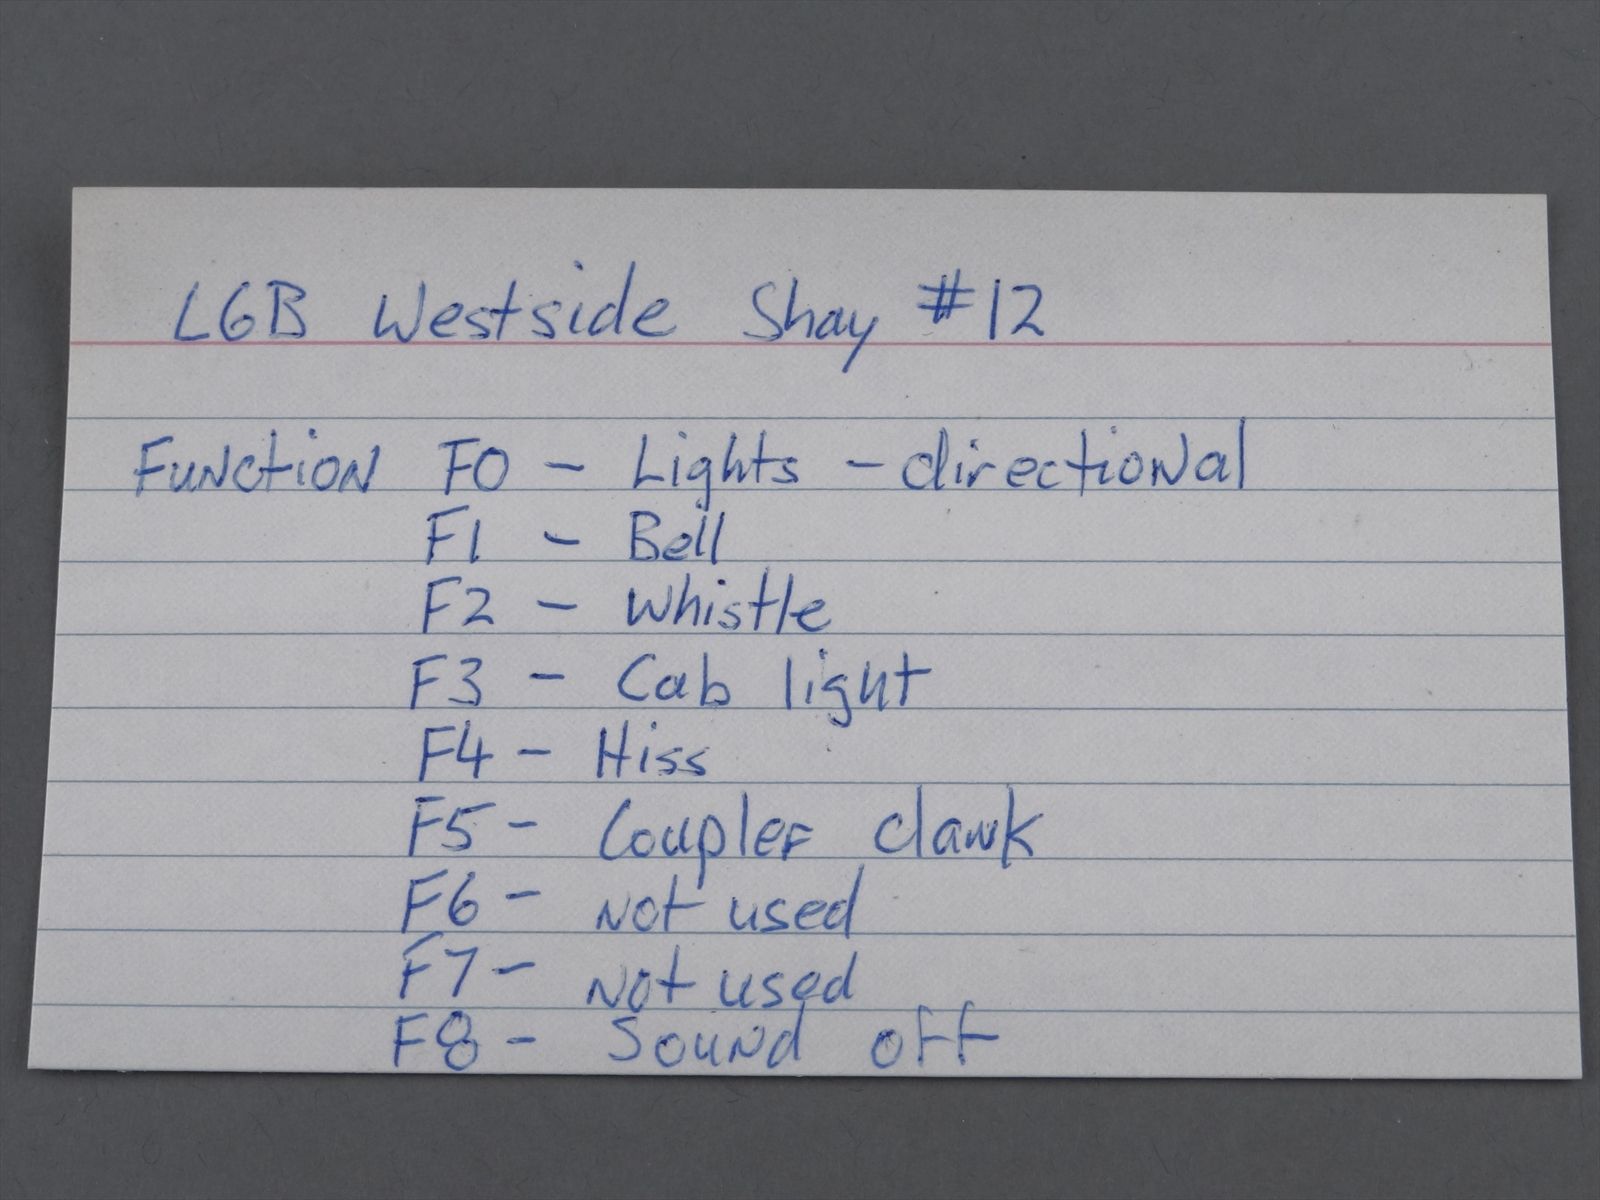 LGB Westside Shay #12
Function F0 - Lights - directional
F1 - Bell
F2 - Whistle
F3 - Cab light
F4 - Hiss
F5 - Coupler clank
F6 - Not used
F7 - Not used
F8 - Sound off